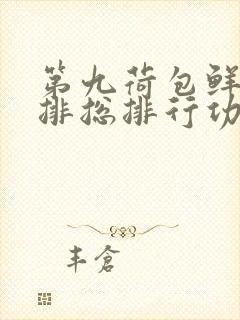 第九荷包鲜
排总排行功
丰仓